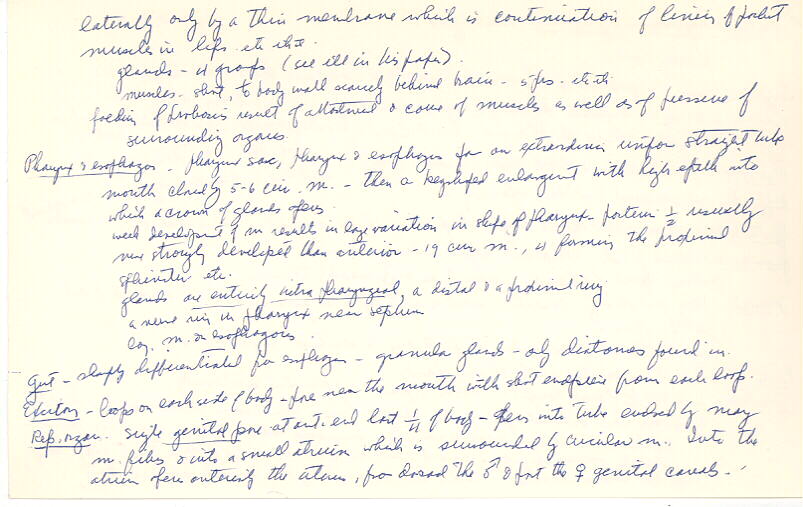 laterally only by a thin membrane which is continuation of lining of
muscles in lips. etc etc.
glands - 4 groups (see ill in his paper).
muscles - short, to body wall scarcely behind brain - 5 prs. etc etc
folding of proboscis result of attachment & course of muscles as well as of pressure of
surrounding organs.
Pharynx & esophagos. Pharynx sac, pharynx & esophagos for an extraordinary uniform straight tube
mouth closed by 5-6 circ. m. - then a keg shaped enlargement with high epith into
which a crown of glands opens
weak development of m results in large variation in shape of pharynx - posterior 1/2 usually
more strongly developed than anterior - 19 circ m., 4 forming the proximal
sphincter etc.
glands are entirely intra pharyngeal, a distal & a proximal ring
a nerve ring in pharynx near septum
long. m. on esophagous.
Gut - sharply differentiated from esophagos - granular glands - only diatomes found in.
Excretory - loops on each side of body - pore near the mouth with short endpiece from each loop.
Rep. organ. single genital pore at ant. end last 1/4 of body - opens into tube enclosed by many
m. fibers & into a small atrium which is surrounded by circular m. Into the
atrium opens anteriorly the uterus, from dorsad the ♂ & post the ♀ genital canals.